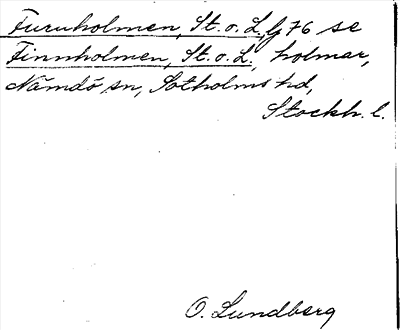 Furuholmen, St. o. L, lj 76 se
Finnholmen, St. o. L., holmar,
Nämdö sn, Sotholms hd,
Stockh. l.
O. Lundberg